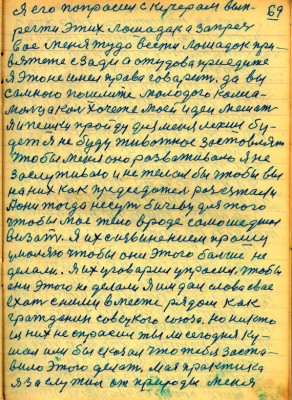 69
ся его попрасил с кучерам вып-
регти этих лошадак а запреч
вас меня туда вести лошадок при-
вяжете сзади а оттудова приедите
я этоне имел права говарить. да вы
сомного пошлите молодого
а как хочете моей идеи мешат
я и пешки пройду для меня лехши бу-
дет я не буду животное заставлят
чтобы меня оно развазивало я не
заслуживаю и не желал бы чтобы вы
на них как председател разезжали
Они тогда несут для того
чтобы мое тело вроде самошедшаго
визать. Я их с извинением прошу
умоляю чтобы они этого болше не
делали. Я их уговарил упрасил, чтобы
они этого не делали Я им дал слово свае
ехат с ними вместе рядом как
гражданин советского союза. но никто
из них не спрасил ты ли сегодня ку-
шал или бы сказал что тебя заста-
вило этого делат, мая практика
я заслужил от природы меня